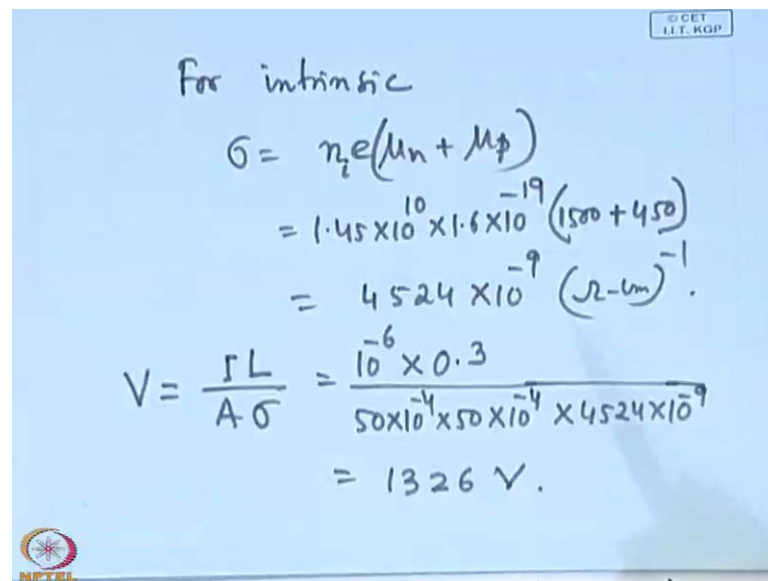 © CET
I.I.T. KGP
For intrinsic
σ = nᵢe(μn + μp)
= 1.45×10¹⁰×1.6×10⁻¹⁹(1500+450)
= 4524×10⁻⁹ (Ω-cm)⁻¹.
V = IL/Aσ = 10⁻⁶ × 0.3/50×10⁻⁴×50×10⁻⁴×4524×10⁻⁹
= 1326 V.
NPTEL